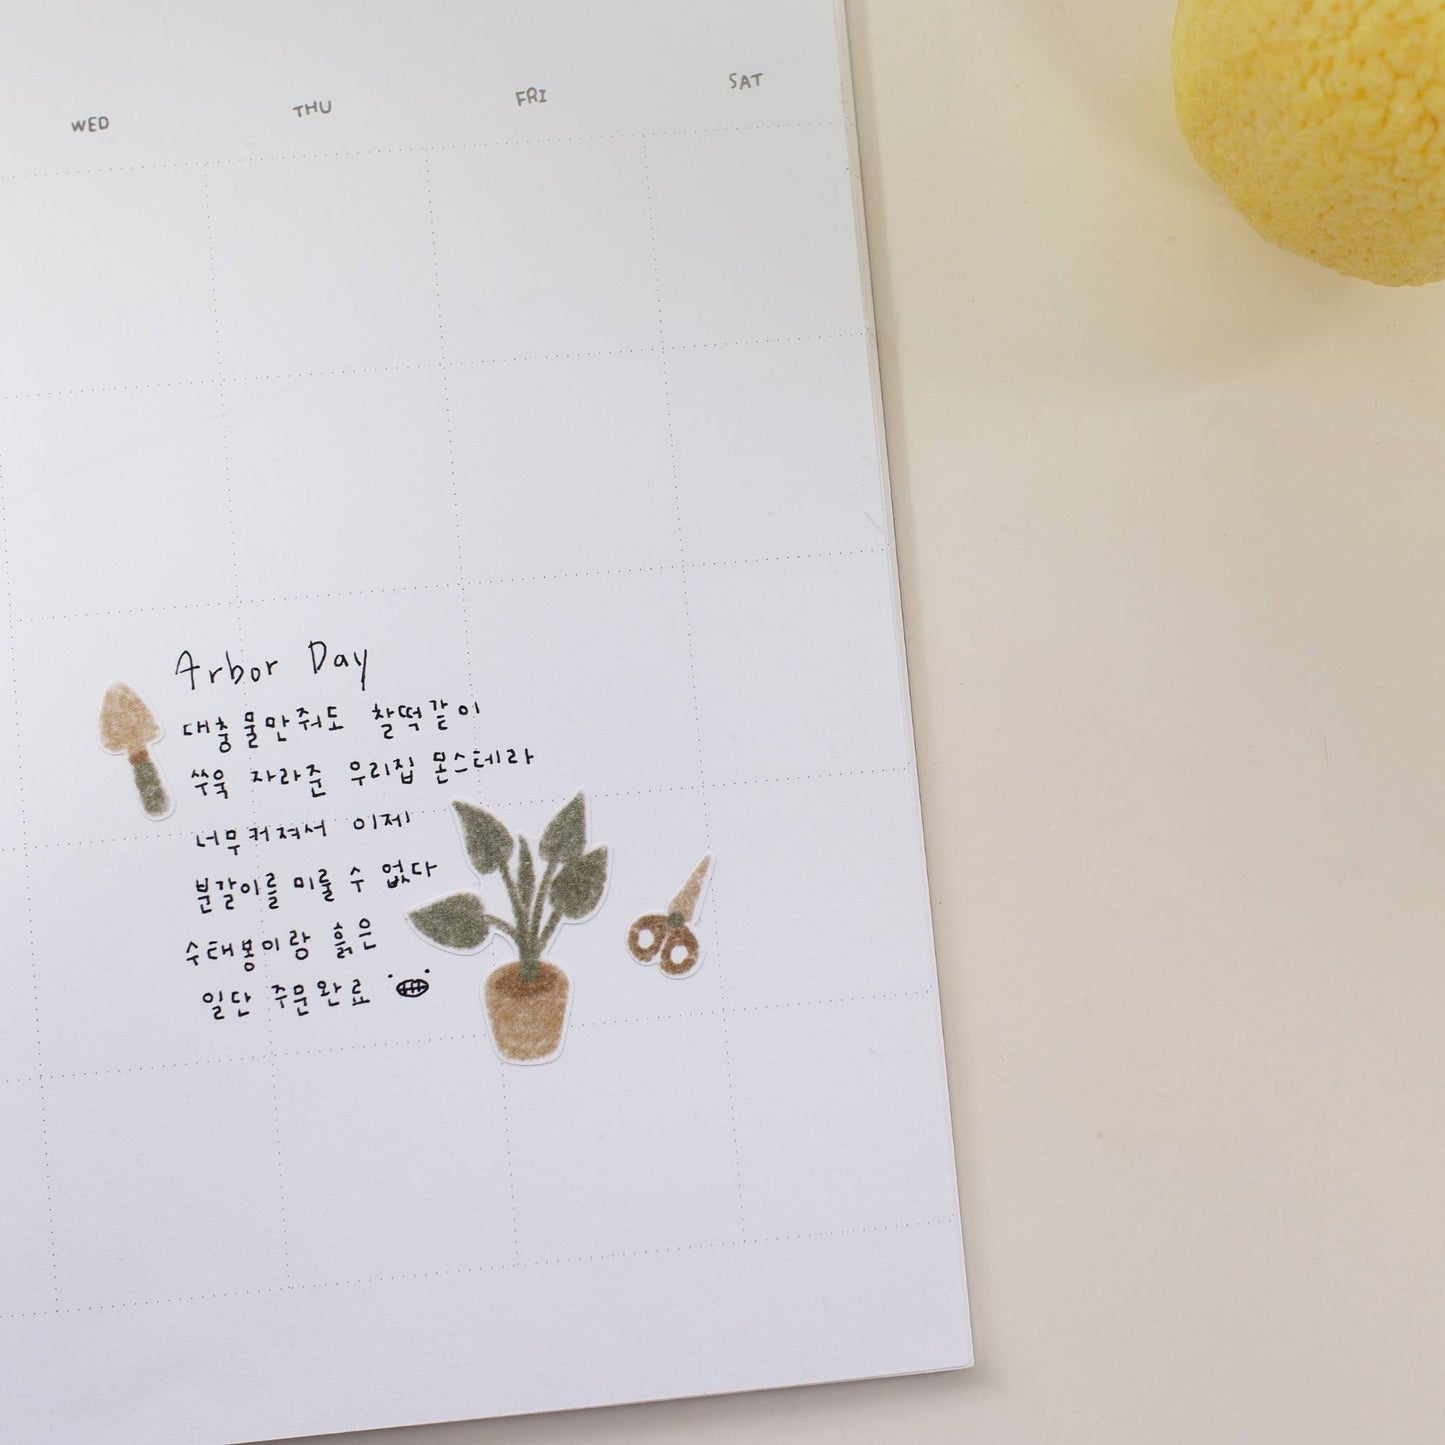 WED THU FRI SAT
Arbor Day
대충물만줘도 찰떡같이
쑤욱 자라준 우리집 몬스테라
너무커져서 이제
분갈이를 미룰 수 없다
수태봉이랑 흙은
일단 주문완료